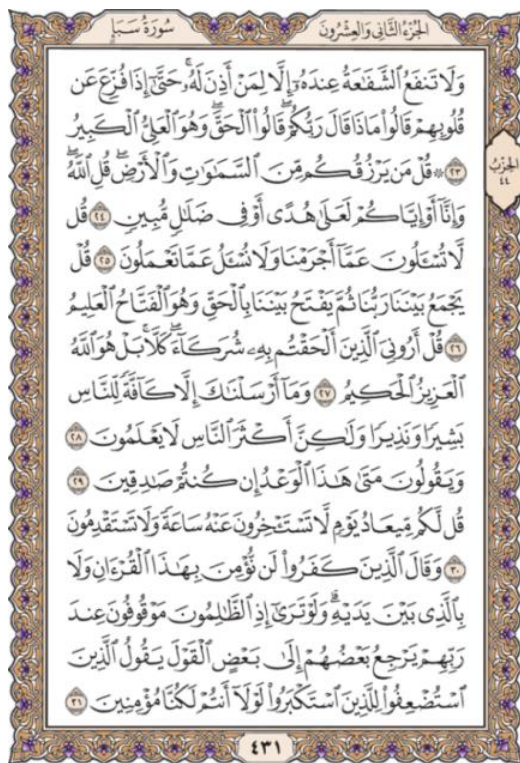 الجزء الثاني والعشرون
سورة سبإ
وَلَا تَنفَعُ ٱلشَّفَٰعَةُ عِندَهُۥٓ إِلَّا لِمَنۡ أَذِنَ لَهُۥۚ حَتَّىٰٓ إِذَا فُزِّعَ عَن
قُلُوبِهِمۡ قَالُواْ مَاذَا قَالَ رَبُّكُمۡۖ قَالُواْ ٱلۡحَقَّۖ وَهُوَ ٱلۡعَلِيُّ ٱلۡكَبِيرُ
٢٣ ۞ قُلۡ مَن يَرۡزُقُكُم مِّنَ ٱلسَّمَٰوَٰتِ وَٱلۡأَرۡضِۖ قُلِ ٱللَّهُۖ
الحزب
٤٤
وَإِنَّآ أَوۡ إِيَّاكُمۡ لَعَلَىٰ هُدًى أَوۡ فِي ضَلَٰلٖ مُّبِينٖ ٢٤ قُل
لَّا تُسۡـَٔلُونَ عَمَّآ أَجۡرَمۡنَا وَلَا نُسۡـَٔلُ عَمَّا تَعۡمَلُونَ ٢٥ قُلۡ
يَجۡمَعُ بَيۡنَنَا رَبُّنَا ثُمَّ يَفۡتَحُ بَيۡنَنَا بِٱلۡحَقِّ وَهُوَ ٱلۡفَتَّاحُ ٱلۡعَلِيمُ
٢٦ قُلۡ أَرُونِيَ ٱلَّذِينَ أَلۡحَقۡتُم بِهِۦ شُرَكَآءَۖ كَلَّاۚ بَلۡ هُوَ ٱللَّهُ
ٱلۡعَزِيزُ ٱلۡحَكِيمُ ٢٧ وَمَآ أَرۡسَلۡنَٰكَ إِلَّا كَآفَّةٗ لِّلنَّاسِ
بَشِيرٗا وَنَذِيرٗا وَلَٰكِنَّ أَكۡثَرَ ٱلنَّاسِ لَا يَعۡلَمُونَ ٢٨
وَيَقُولُونَ مَتَىٰ هَٰذَا ٱلۡوَعۡدُ إِن كُنتُمۡ صَٰدِقِينَ ٢٩
قُل لَّكُم مِّيعَادُ يَوۡمٖ لَّا تَسۡتَـٔۡخِرُونَ عَنۡهُ سَاعَةٗ وَلَا تَسۡتَقۡدِمُونَ
٣٠ وَقَالَ ٱلَّذِينَ كَفَرُواْ لَن نُّؤۡمِنَ بِهَٰذَا ٱلۡقُرۡءَانِ وَلَا
بِٱلَّذِي بَيۡنَ يَدَيۡهِۗ وَلَوۡ تَرَىٰٓ إِذِ ٱلظَّٰلِمُونَ مَوۡقُوفُونَ عِندَ
رَبِّهِمۡ يَرۡجِعُ بَعۡضُهُمۡ إِلَىٰ بَعۡضٍ ٱلۡقَوۡلَ يَقُولُ ٱلَّذِينَ
ٱسۡتُضۡعِفُواْ لِلَّذِينَ ٱسۡتَكۡبَرُواْ لَوۡلَآ أَنتُمۡ لَكُنَّا مُؤۡمِنِينَ ٣١
٤٣١